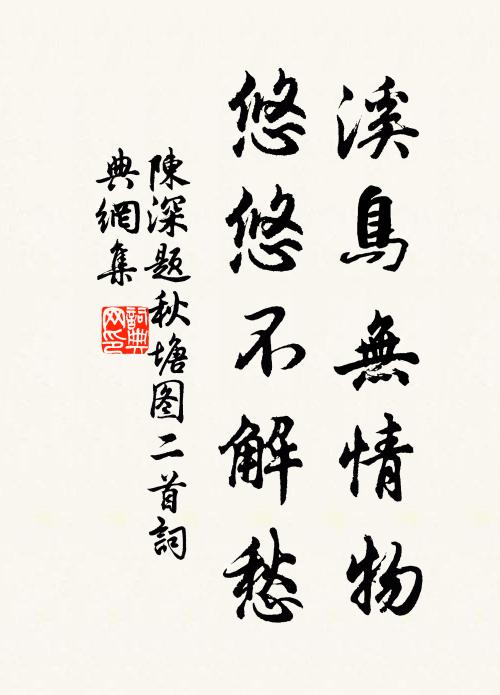 溪鳥無情物
悠悠不解愁
陳深題秋塘图二首詞
典網集
詞典
网印